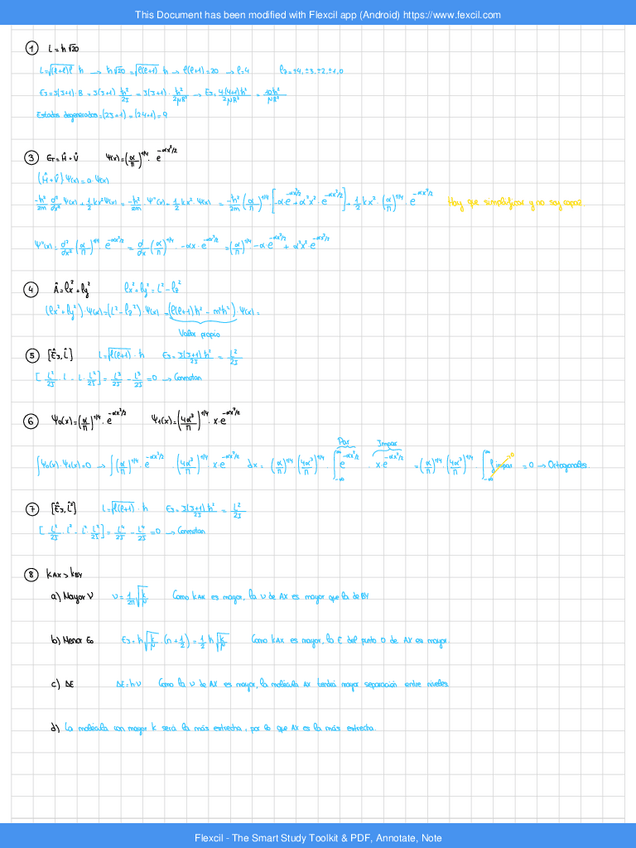 This Document has been modified with Flexcil app (Android) https://www.fexcil.com
① L = ħ√20
L=√(ℓ(ℓ+1)) ħ → ħ√20 = √(ℓ(ℓ+1)) ħ → ℓ(ℓ+1)=20 → ℓ=4 ℓz=±4,±3,±2,±1,0
EJ=J(J+1)·B = J(J+1) ħ²/2I = J(J+1)· ħ²/2μR² → EJ= 4(4+1)ħ²/2μR² = 10ħ²/μR²
Estados degenerados=(2J+1)=(2·4+1)=9
③ ET=Ĥ+V̂ Ψ(x)=(α/π)^1/4 · e^-αx²/2
(Ĥ+V̂)Ψ(x)=a·Ψ(x)
-ħ²/2m d²/dx² Ψ(x)+1/2 kx²Ψ(x) = -ħ²/2m Ψ''(x)+1/2 kx² Ψ(x) = -ħ²/2m (α/π)^1/4 [-α·e^-αx²/2+α²x²·e^-αx²/2]+1/2 kx² (α/π)^1/4 · e^-αx²/2 Hay que simplificar y no soy capaz
Ψ''(x)= d²/dx² (α/π)^1/4 e^-αx²/2 = d/dx (α/π)^1/4 -αx·e^-αx²/2 = (α/π)^1/4 -αe^-αx²/2 + α²x² e^-αx²/2
④ Â=ℓx²+ℓy² ℓx²+ℓy²=L²-ℓz²
(ℓx²+ℓy²)·Ψ(x)=(L²-ℓz²)·Ψ(x)=(ℓ(ℓ+1)ħ²-m²ħ²)Ψ(x)=
Valor propio
⑤ [ÊJ,L̂] L=√(ℓ(ℓ+1))·ħ EJ= J(J+1)ħ²/2I = L²/2I
[L²/2I · L - L L²/2I] = L³/2I - L³/2I =0 → Conmutan
⑥ Ψ0(x)=(α/π)^1/4 · e^-αx²/2 Ψ1(x)=(4α³/π)^1/4 · x·e^-αx²/2
Par Impar
∫Ψ0(x)·Ψ1(x)=0 → ∫(α/π)^1/4 · e^-αx²/2 (4α³/π)^1/4 x·e^-αx²/2 dx = (α/π)^1/4 (4α³/π)^1/4 ∫ e^-αx²/2 x·e^-αx²/2 =(α/π)^1/4 (4α³/π)^1/4 ∫ f impar = 0 → Ortogonales
⑦ [ÊJ,L̂²] L=√(ℓ(ℓ+1))·ħ EJ= J(J+1)ħ²/2I = L²/2I
[L²/2I · L² - L² L²/2I] = L⁴/2I - L⁴/2I =0 → Conmutan
⑧ KAX > KBY
a) Mayor ν ν= 1/2π √(k/μ) Como kAX es mayor, la ν de AX es mayor que la de BY
b) Menor E0 EJ=ħ√(k/μ)·(n+1/2)=1/2 ħ√(k/μ) Como kAX es mayor, la E del punto 0 de AX es mayor.
c) ΔE ΔE=hν Como la ν de AX es mayor, la molécula AX tendrá mayor separación entre niveles
d) La molécula con mayor k será la más estrecha, por lo que AX es la más estrecha.
Flexcil - The Smart Study Toolkit & PDF, Annotate, Note